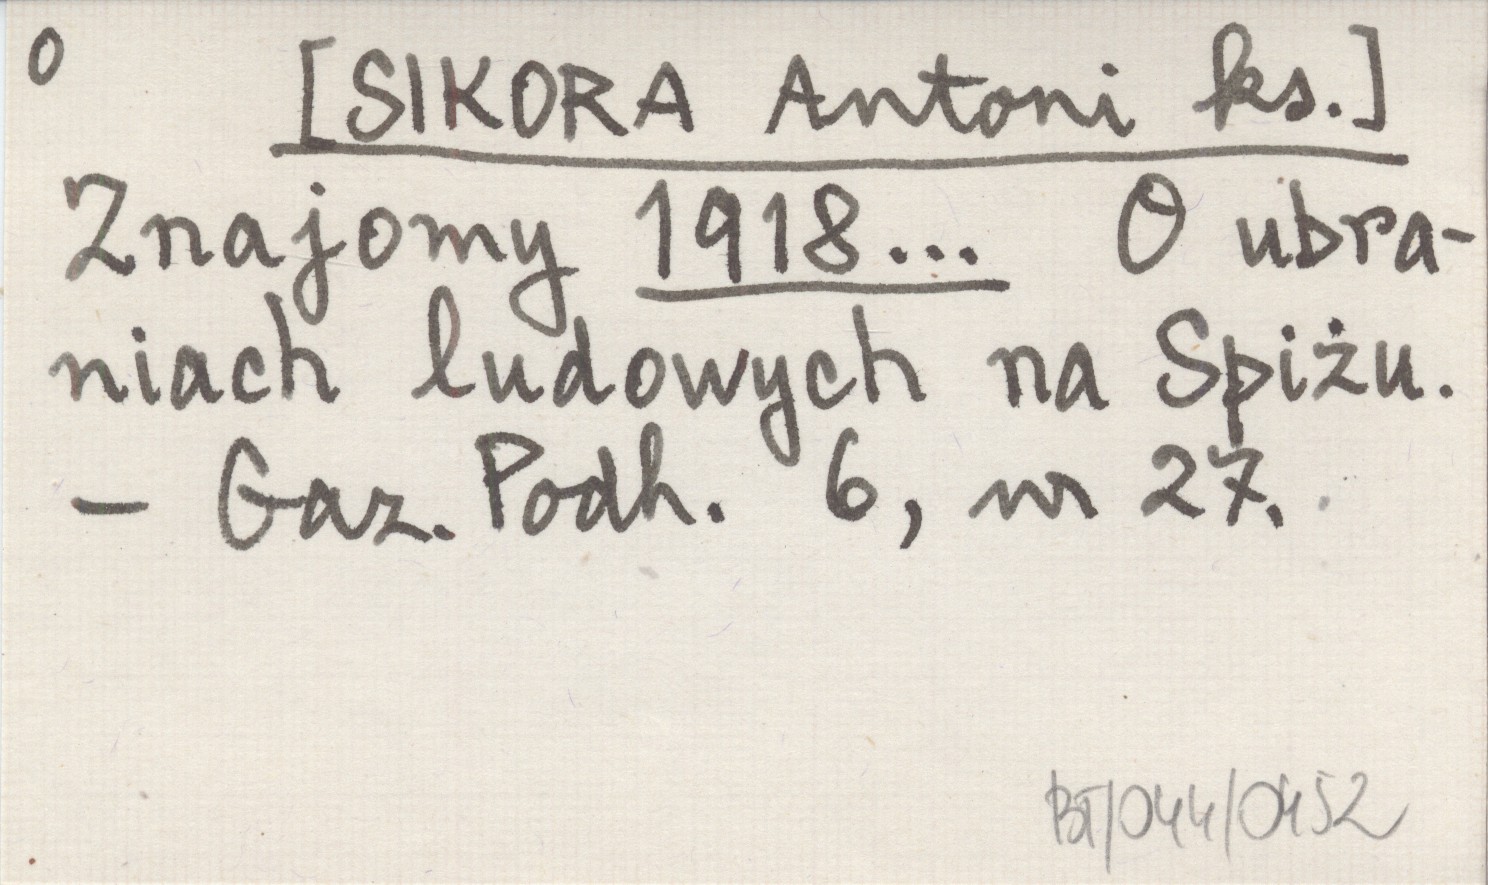 0
[SIKORA Antoni ks.]
Znajomy 1918... O ubra-
niach ludowych na Spiżu.
- Gaz. Podh. 6, nr 27.
BT/044/0452